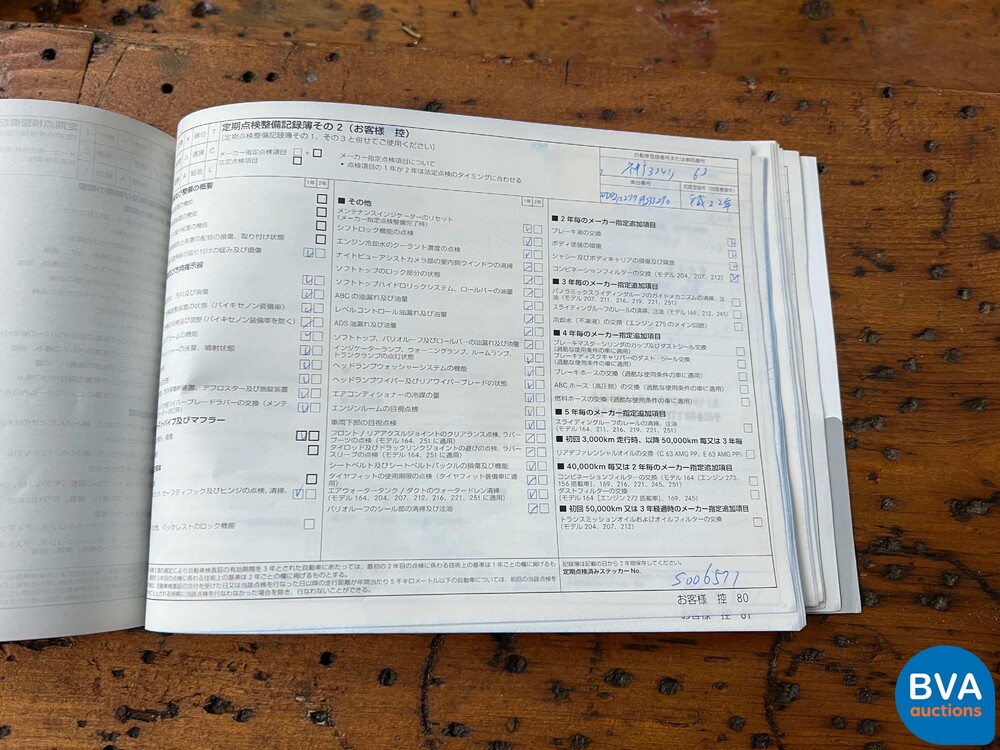 定期点検整備記録簿その2（お客様 控）
[定期点検整備記録簿その1、その3と併せてご使用ください]
メーカー指定点検項目
法定点検項目
メーカー指定点検項目について
• 点検項目の1年か2年は法定点検のタイミングに合わせる
自動車登録番号または車両番号
車台番号
1年 2年
の損傷、取り付け状態
取り付けの緩み及び損傷
汚れ及び損傷
装置の状態（バイキセノン装備車）
の点検及び調整（バイキセノン装備車を除く）
の機能
の油量、噴射状態
デフロスターの機能
パイプ及びマフラー
セーフティフック及びヒンジの点検、清掃、
バックレストのロック機能
■ その他
1年 2年
メンテナンスインジケーターのリセット
（メーカー指定点検整備完了時）
シフトロック機能の点検
エンジン冷却水のクーラント濃度の点検
ナイトビューアシストカメラ部の室内側ウインドウの清掃
ソフトトップのロック部分の状態
ソフトトップハイドロリックシステム、ロールバーの油量
ABC の油漏れ及び油量
レベルコントロール油漏れ及び油量
ADS 油漏れ及び油量
ソフトトップ、バリオルーフ及びロールバーの油漏れ及び油量
インジケーターランプ、ウォーニングランプ、ルームランプ、
トランクランプの点灯状態
ヘッドランプウォッシャーシステムの機能
ヘッドランプワイパー及びリアワイパーブレードの状態
エアコンディショナーの冷媒の量
エンジンルームの目視点検
車両下部の目視点検
フロント / リアアクスルジョイントのクリアランス点検、ラバー
ブーツの点検（モデル 164、251 に適用）
タイロッド及びドラックリンクジョイントの遊びの点検、ラバー
スリーブの点検（モデル 164、251 に適用）
シートベルト及びシートベルトバックルの損傷及び機能
タイヤフィットの使用期限の点検（タイヤフィット装備車に適
用）
エアウォータータンク / ダクトのウォータードレン清掃
（モデル 164、204、207、212、216、221、251 に適用）
バリオルーフのシール部の清掃及び注油
■ 2 年毎のメーカー指定追加項目
ブレーキ液の交換
ボディ塗装の損傷
シャシー及びボディキャリアの損傷及び腐食
コンビネーションフィルターの交換（モデル 204、207、212）
■ 3 年毎のメーカー指定追加項目
パノラミックスライディングルーフのガイドメカニズムの清掃、注
油（モデル 207、211、216、219、221、251）
スライディングルーフのレールの清掃、注油（モデル 169、212、245）
冷却水（不凍液）の交換（エンジン 275 のメイン回路）
■ 4 年毎のメーカー指定追加項目
ブレーキマスターシリンダのカップ及びダストシール交換
（過酷な使用条件の車に適用）
ブレーキディスクキャリパーのダスト・シール交換
（過酷な使用条件の車に適用）
ブレーキホースの交換（過酷な使用条件の車に適用）
ABC ホース（高圧側）の交換（過酷な使用条件の車に適用）
燃料ホースの交換（過酷な使用条件の車に適用）
■ 5 年毎のメーカー指定追加項目
スライディングルーフのレールの清掃、注油
（モデル 164、211、216、219、221、251）
■ 初回 3,000km 走行時、以降 50,000km 毎又は 3 年毎
リアデファレンシャルオイルの交換（C 63 AMG PP、E 63 AMG PP）
■ 40,000km 毎又は 2 年毎のメーカー指定追加項目
コンビネーションフィルターの交換（モデル 164 [エンジン 273、
156 搭載車]、169、216、221、245、251）
ダストフィルターの交換
（モデル 164 [エンジン 272 搭載車]、169、245）
■ 初回 50,000km 又は 3 年経過時のメーカー指定追加項目
トランスミッションオイルおよびオイルフィルターの交換
（モデル 204、207、212）
記録簿は記載の日から 2 年間保存してください。
定期点検済みステッカー No.
S006577
お客様 控 80
お客様 控 81
BVA
auctions